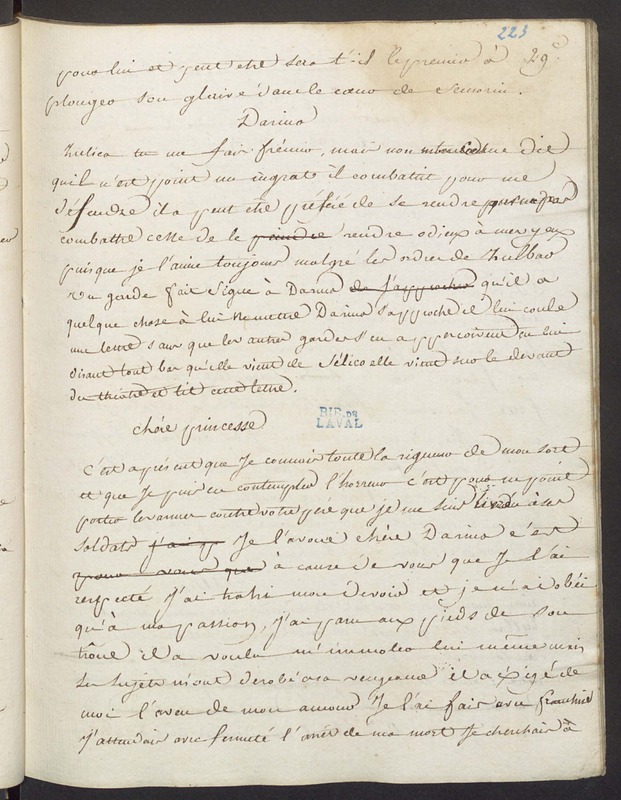 223
29e
pour lui et peut etre sera t-il le premier à
plonger son glaive dans le cœur de
Darina
Zulica tu me fais frémir, mais non me dit
qu'il n'est point un ingrat il combattit pour me
défendre il a peut être préféré de se rendre
combattre cesse de le peindre rendre odieux à mes yeux
puisque je l'aime toujours malgré les ordres de Zulbar
Un garde fait signe à Darina de s'approcher qu'il a
quelque chose à lui remettre Darina s'approche il lui coule
une lettre sans que les autres gardes s'en apperçoivent en lui
disant tout bas qu'elle vient de Sélico elle vient sur le devant
du théatre et lit cette lettre.
chére princesse
BIB. DE
LAVAL
C'est aprésent que Je connois toute la rigueur de mon sort
et que Je puis en contempler l'horreur c'est pour ne point
porter les armes contre votre pére que je me suis livré à ses
soldats Je l'avoue chére Darina c'est
pour vous que à cause de vous que Je l'ai
respecté J'ai trahi mon devoir et je n'ai obéi
qu'à ma passion, J'ai paru aux pieds de son
trône il a voulu m'immoler lui même mais
ses sujets m'ont derobé a sa vengeance il a exigé de
moi l'aveu de mon amour Je l'ai fait avec franchise
J'attendais avec fermeté l'arrêt de ma mort Je cherchais à